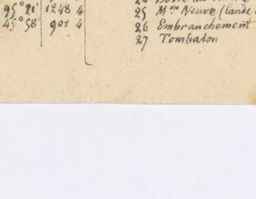 95° 21' 1248 4
45° 58' 901 4
25 Mon Neuve (lande
26 Embranchement
27 Tombaton